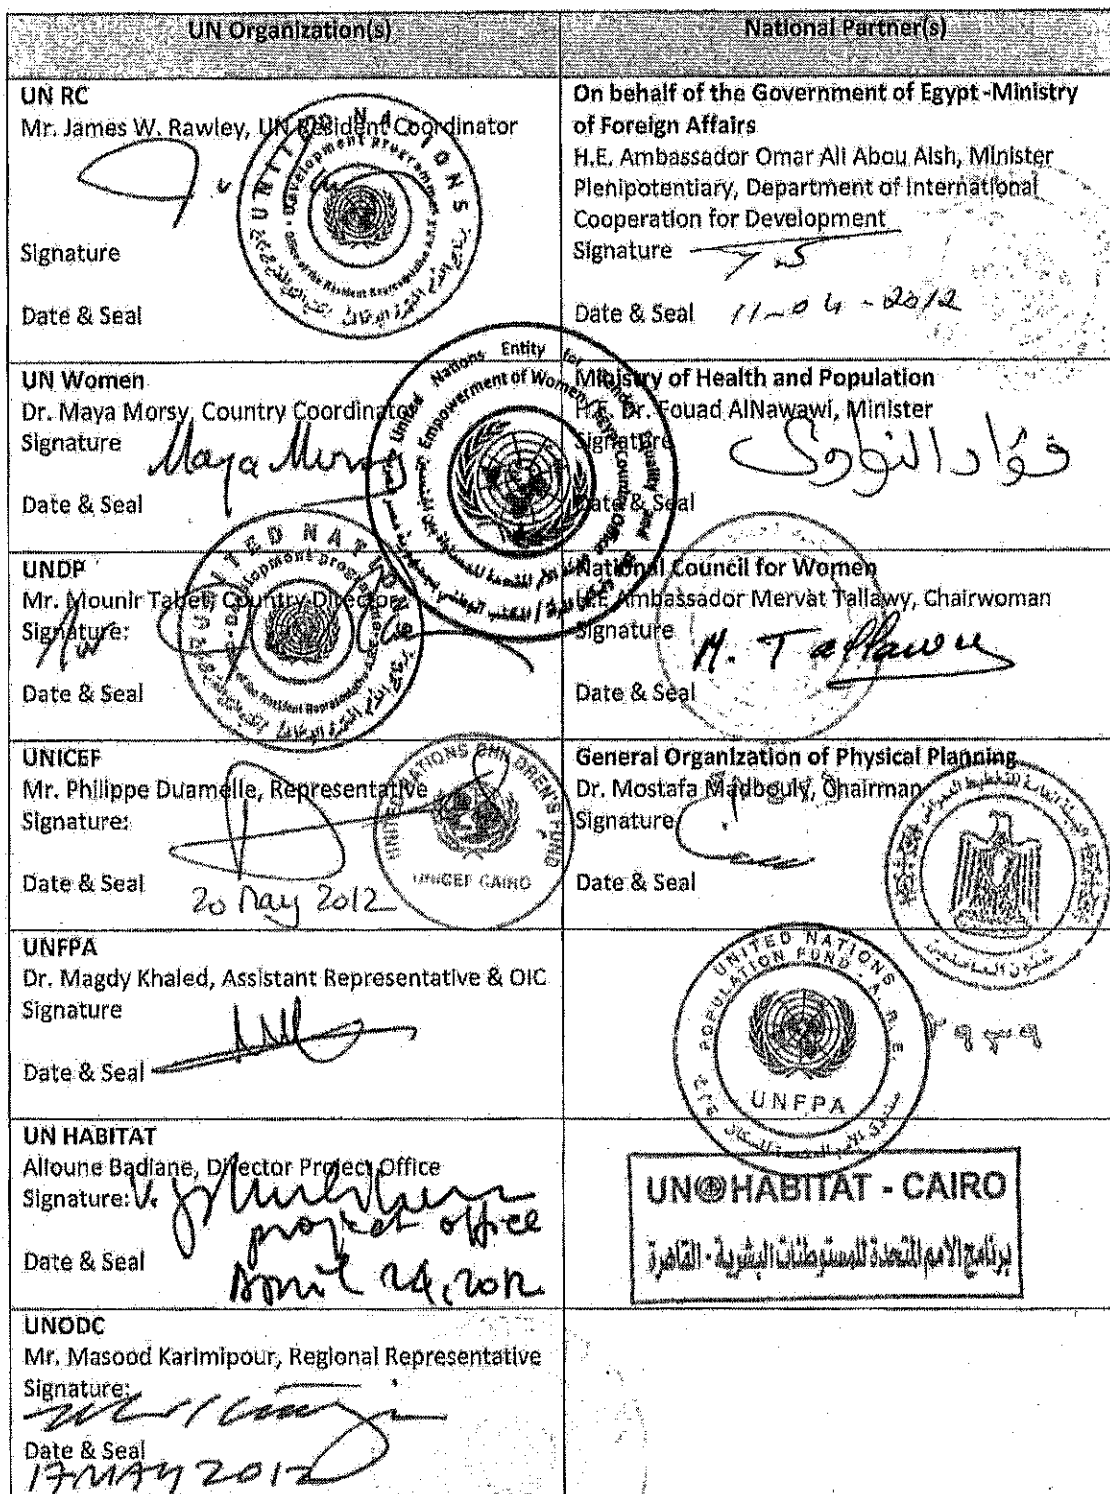 UN Organization(s)
National Partner(s)
UN RC
Mr. James W. Rawley, UN Resident Coordinator
Signature
Date & Seal
On behalf of the Government of Egypt -Ministry
of Foreign Affairs
H.E. Ambassador Omar Ali Abou Aish, Minister
Plenipotentiary, Department of International
Cooperation for Development
Signature
Date & Seal 11-04-2012
UNITED NATIONS
Development programme
UN Women
Dr. Maya Morsy, Country Coordinator
Signature Maya Morsy
Date & Seal
United Nations Entity for Gender Equality and
Empowerment of Women Egypt Country Office
Ministry of Health and Population
H.E. Dr. Fouad AlNawawi, Minister
Signature فؤاد النواوى
Date & Seal
UNDP
Mr. Mounir Tabet, Country Director
Signature:
Date & Seal
UNITED NATIONS
Development programme
National Council for Women
H.E Ambassador Mervat Tallawy, Chairwoman
Signature M. Tallawy
Date & Seal
UNICEF
Mr. Philippe Duamelle, Representative
Signature:
Date & Seal
20 May 2012
UNITED NATIONS CHILDREN'S FUND
UNICEF CAIRO
General Organization of Physical Planning
Dr. Mostafa Madbouly, Chairman
Signature
Date & Seal
UNFPA
Dr. Magdy Khaled, Assistant Representative & OIC
Signature
Date & Seal
UNITED NATIONS
POPULATION FUND - A. R. E.
UNFPA
UN HABITAT
Alioune Badiane, Director Project Office
Signature:
project office
Date & Seal
April 24, 2012
UN HABITAT - CAIRO
برنامج الامم المتحدة للمستوطنات البشرية - القاهرة
UNODC
Mr. Masood Karimipour, Regional Representative
Signature:
Date & Seal
17 MAY 2012